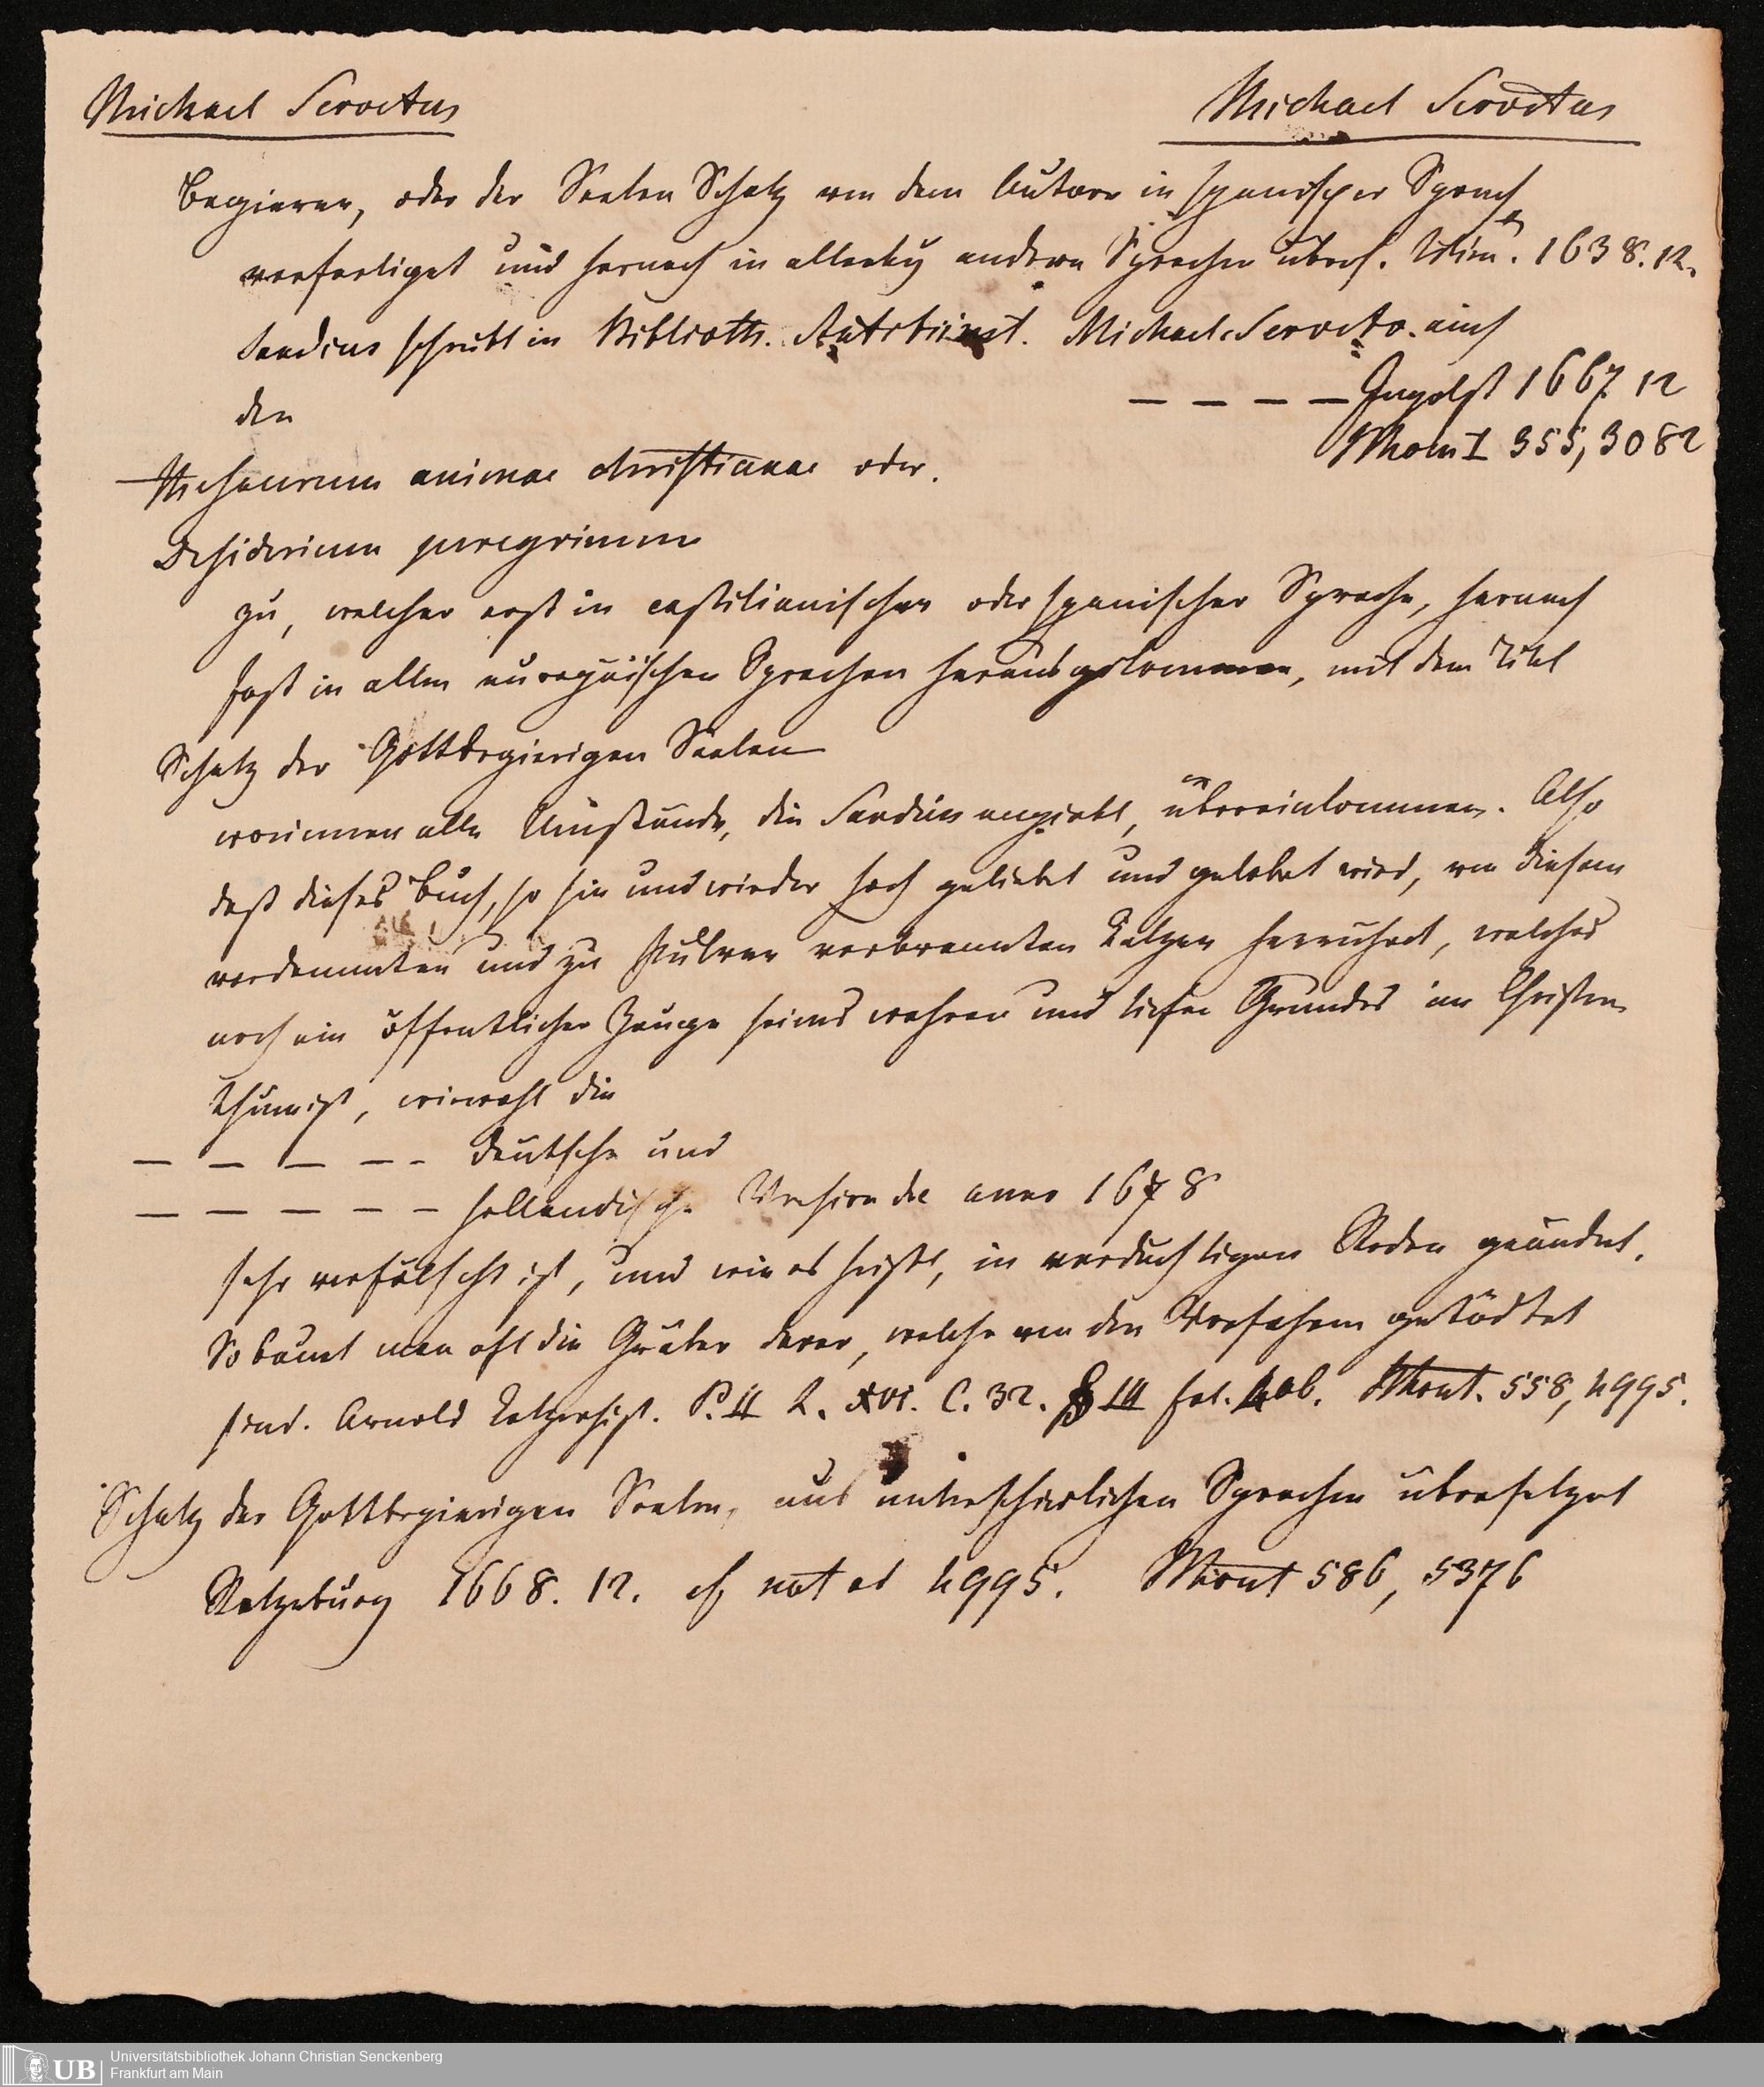 Michael Servetus
Michael Servetus
Begierer, oder der Seelen Schatz von dem Autore in spanischer Sprach
verfertiget und hernach in allerley andern Sprachen übers. 1638. 12.
Sandius schreibt in Biblioth. Antitrinit. Michael Serveto. auch
— — — — Ingolst 1667 12
den
Thom I 355, 3082
Thesaurum animae christianae oder.
Desiderium peregrinum
zu, welcher erst in castilianischer oder spanischer Sprache, hernach
fast in allen europäischen Sprachen herausgekommen, mit dem Titel
Schatz der Gottbegierigen Seelen
worinnen alle Umstände, die Sandius angiebt, übereinkommen. Also
daß dieses Buch, so hin und wieder hoch geliebt und gelobet wird, von diesem
verdammten und zu Pulver verbrannten Ketzer herrühret, welches
noch ein öffentlicher Zeuge seines wahren und tiefen Grundes im Christen
thum ist, wiewohl die
— — — — - deutsche und
— — — — — holländische Version de anno 1678
sehr verfälscht ist, und wie es heißt, in verdächtigen Reden geändert.
So bauet man oft die Gräber derer, welche von den Vorfahren getödtet
sind. Arnold Ketzerhist. P. II L. XVI. C. 32. § III fol. 406. Thom I. 558, 4995.
Schatz der Gottbegierigen Seelen, aus unterschiedlichen Sprachen übersetzet
Ratzeburg 1668. 12. cf not ad 4995. Thom I 586, 5376
Universitätsbibliothek Johann Christian Senckenberg
Frankfurt am Main
UB